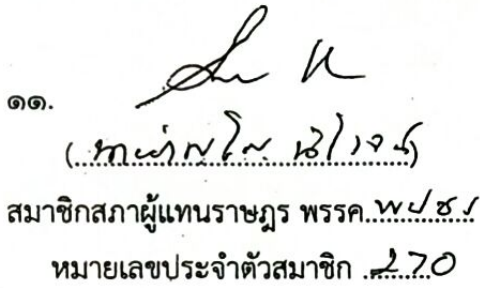 ๑๑.
สมาชิกสภาผู้แทนราษฎร พรรค พปชร
หมายเลขประจำตัวสมาชิก 270